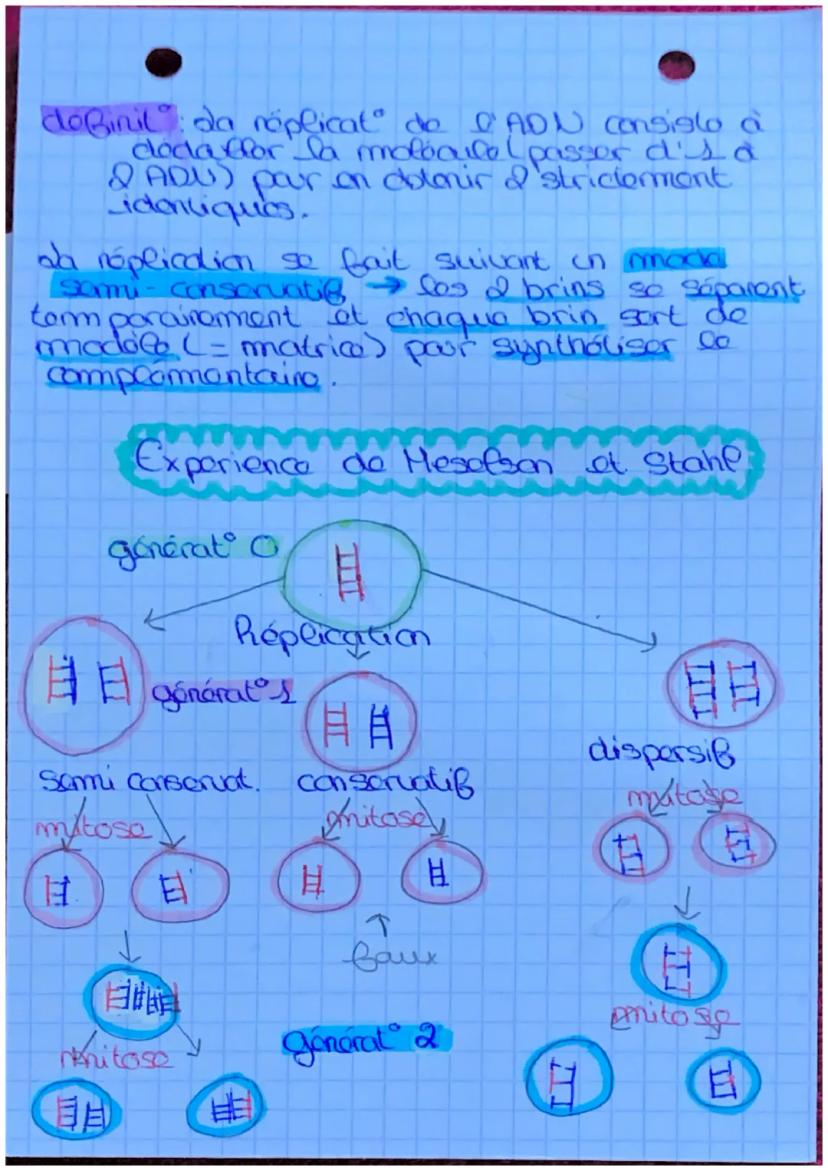 definit° : La réplicat° de l'ADN consiste à
dédoubler la molécule (passer d'1 à
2 ADN) pour en obtenir 2 strictement
identiques.
La réplication se fait suivant un mode
semi-conservatif → les 2 brins se séparent
temporairement et chaque brin sert de
modèle (= matrice) pour synthétiser le
complémentaire.
Experience de Meselson et Stahl
générat° 0
Réplication
générat° 1
semi conservat. conservatif dispersif
mitose mitose mitose
faux
générat° 2
mitose mitose